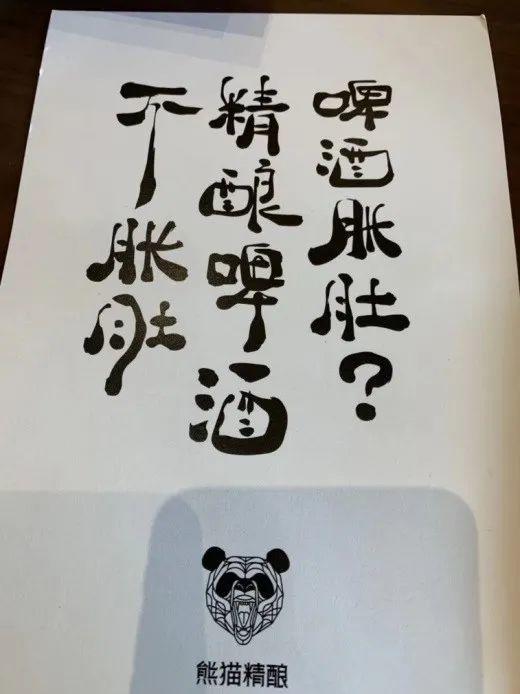 啤酒胀肚?
精酿啤酒
不胀肚
熊猫精酿